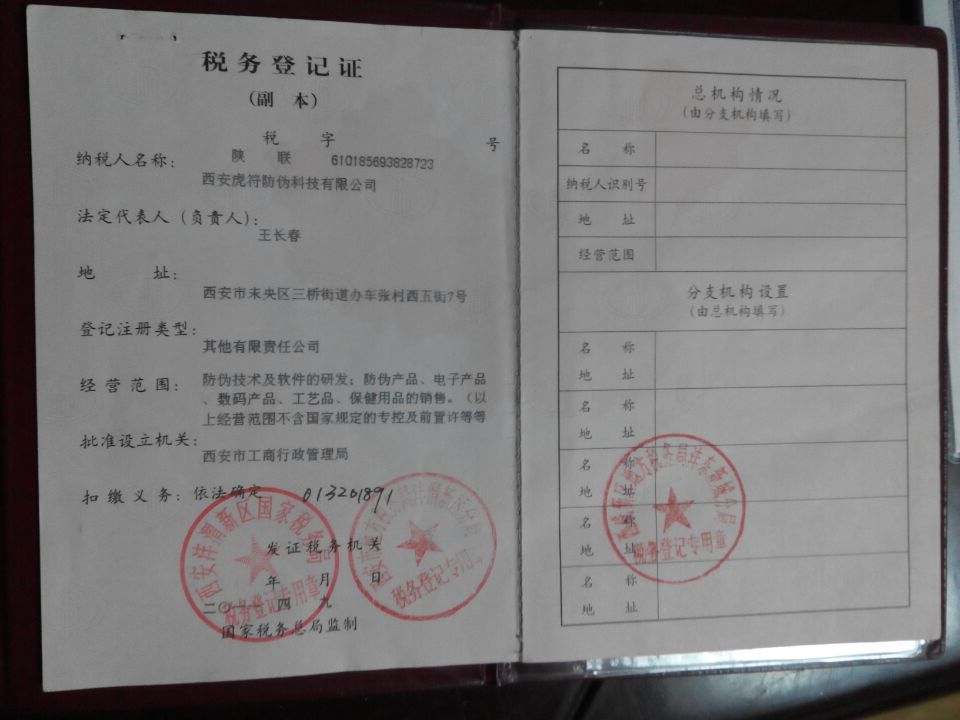 税务登记证
(副 本)
税 字 号
陕 联 610185693828723
纳税人名称：
西安虎符防伪科技有限公司
法定代表人（负责人）：
王长春
地 址：
西安市未央区三桥街道办车张村西五街7号
登记注册类型：
其他有限责任公司
经营范围：
防伪技术及软件的研发；防伪产品、电子产品
、数码产品、工艺品、保健用品的销售。（以
上经营范围不含国家规定的专控及前置许等等
批准设立机关：
西安市工商行政管理局
扣缴义务：依法确定 013201891
发证税务机关
年 月 日
二〇一一 四 九
国家税务总局监制
税务登记专用章
税务登记专用章
总机构情况
(由分支机构填写)
名 称
纳税人识别号
地 址
经营范围
分支机构设置
(由总机构填写)
名 称
地 址
名 称
地 址
名 称
地 址
名 称
地 址
名 称
地 址
税务登记专用章